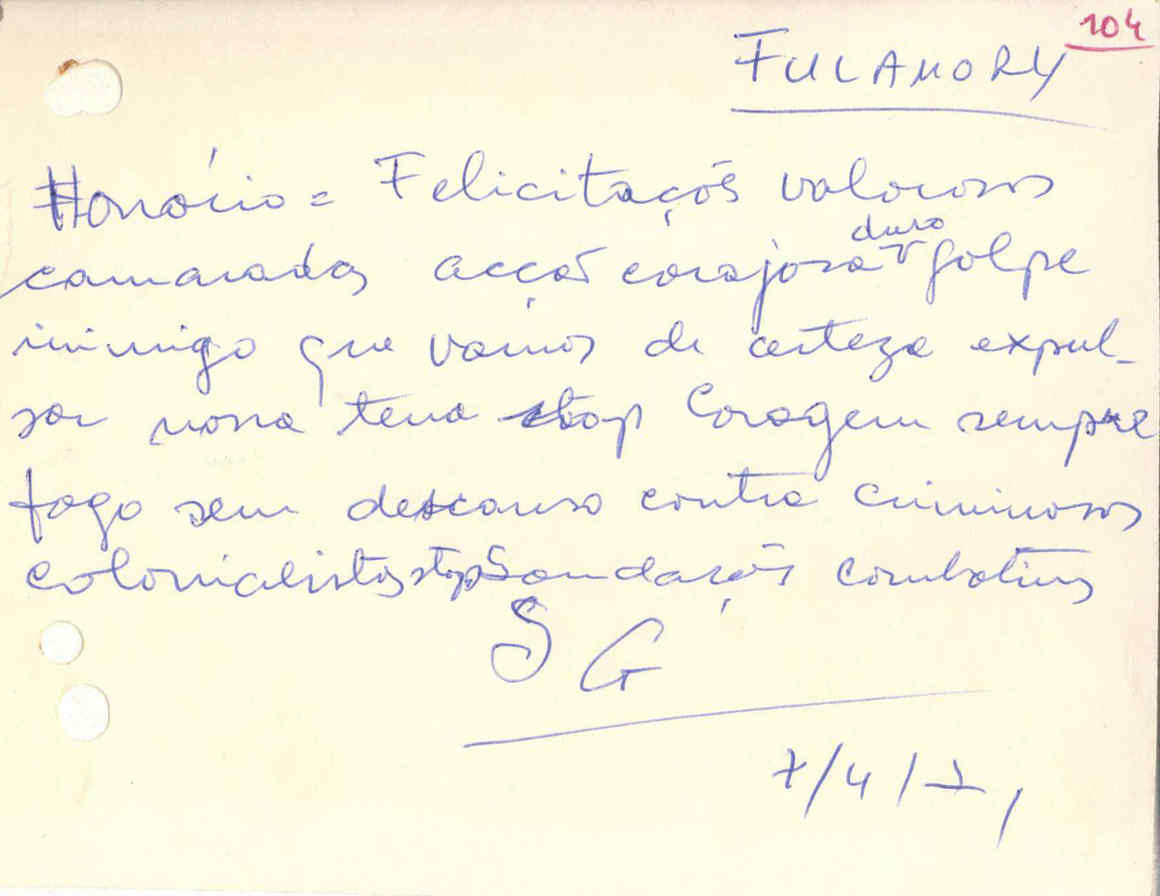 104
FULAMORY
Honório = Felicitações valorosos
camaradas acção corajosa duro golpe
inimigo que vamos de certeza expul-
sar nossa terra stop Coragem sempre
fogo sem descanso contra criminosos
colonialistas stop Saudações combativas
SG
7/4/71